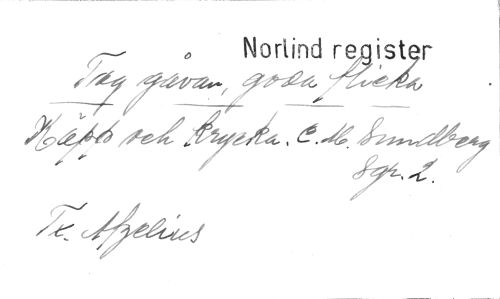 Norlind register
Tag gåvan, goda flicka
Käpp och krycka. C. M. Sundberg
Sgr. 2.
Tx. Afzelius